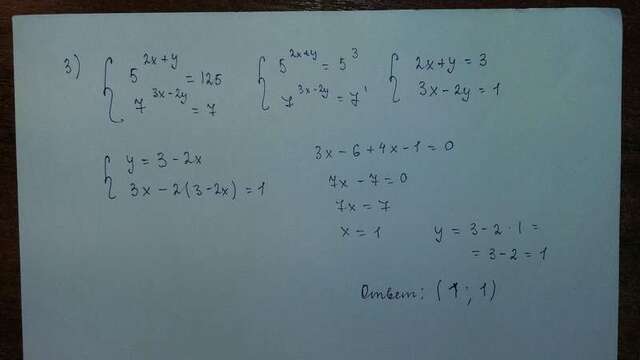 3) { 5^{2x+y} = 125 { 5^{2x+y} = 5^3 { 2x+y = 3
7^{3x-2y} = 7 7^{3x-2y} = 7^1 3x-2y = 1
{ y = 3 - 2x
3x - 2(3-2x) = 1
3x - 6 + 4x - 1 = 0
7x - 7 = 0
7x = 7
x = 1
y = 3 - 2 · 1 =
= 3 - 2 = 1
Ответ: (1; 1)